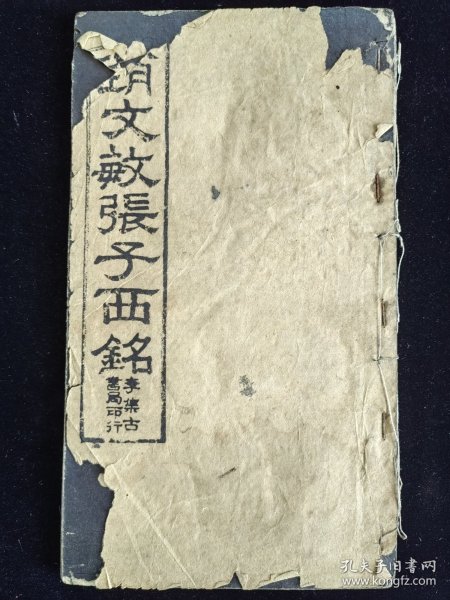 趙文敏張子西銘
李集古
書局印行
孔夫子旧书网
www.kongfz.com